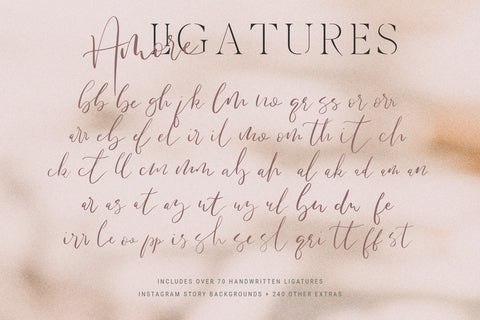 Amore LIGATURES
bb be gh jk lm no qr ss or orr
arr eb ef el ir il mo om th it ch
ck ct ll cm mm ab ah al ak ad am an
ar as at ay ut uy ul bu du fe
irr le oo pp is sh se sl qri tt ff st
INCLUDES OVER 70 HANDWRITTEN LIGATURES
INSTAGRAM STORY BACKGROUNDS + 240 OTHER EXTRAS